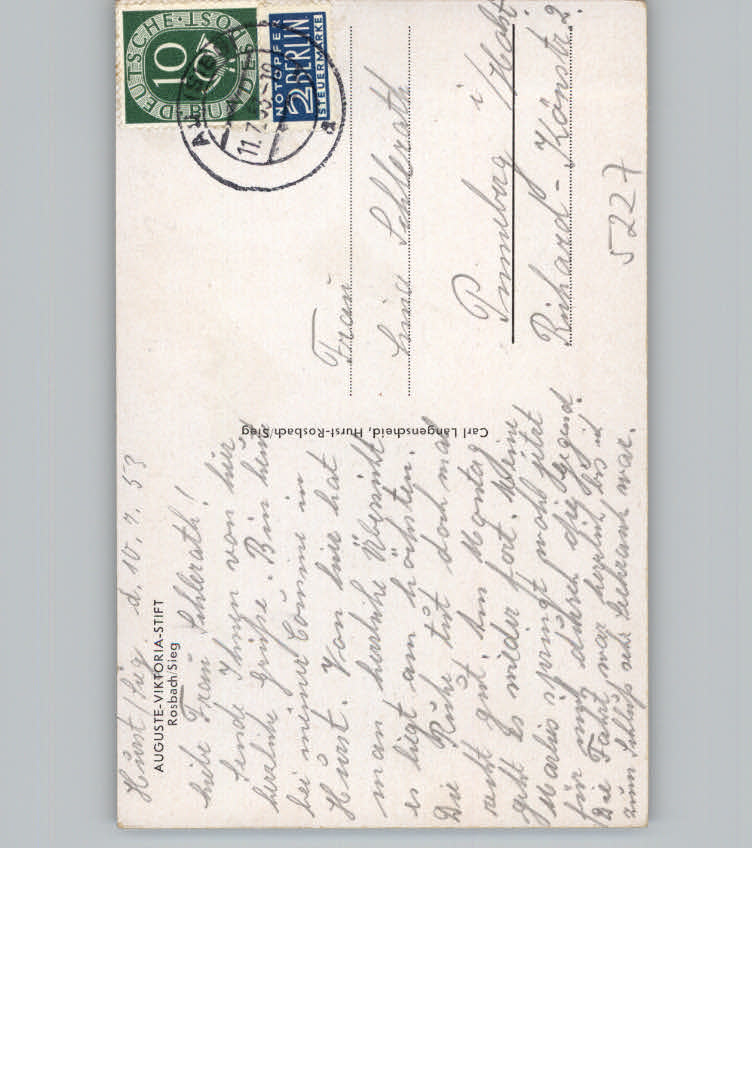 Hurst/Sieg d. 10.7.53
AUGUSTE-VIKTORIA-STIFT
Rosbach/Sieg
Liebe Frau Schlerath!
Sende Ihnen von hier
herzliche Grüße. Bin heut
bei meiner Cousine in
Hurst. Von hier hat
man herrliche Übersicht
es liegt am höchsten.
Die Ruhe tut doch mal
recht gut. Am Montag
geht es wieder fort. Meine
Marlies springt wohl jetzt
für mich durch die Gegend.
Die Fahrt war herrlich, bis ich
zum Schluß sehr war.
Carl Langenscheid, Hurst-Rosbach/Sieg
DEUTSCHE POST
10
BUNDES
NOTOPFER
2 BERLIN
STEUERMARKE
11.7.53-10
a
Frau
Schlerath
Pinneberg i/Holst
Richard-Köhnstr 2.
5227